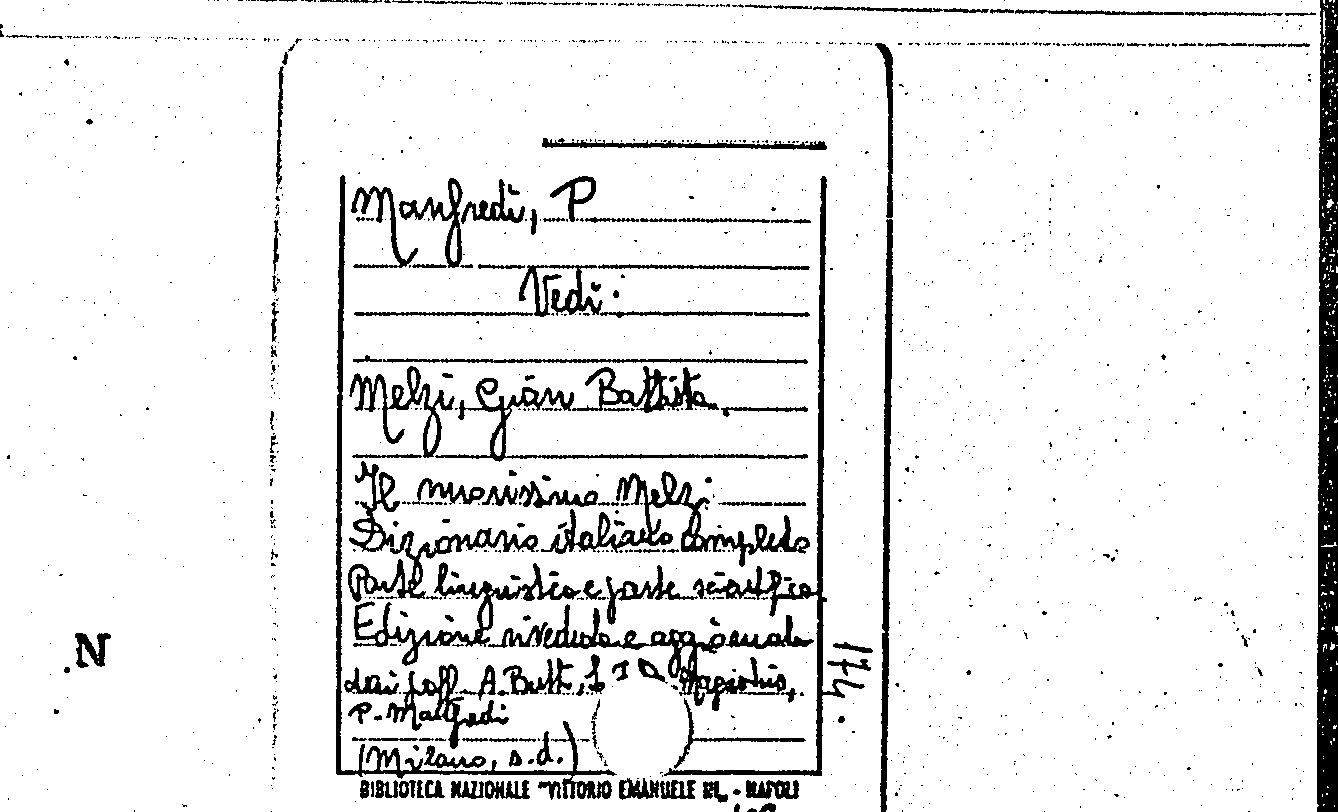 Manfredi, P
Vedi:
Melzi, Gian Battista.
Il nuovissimo Melzi
Dizionario italiano completo
Parte linguistica e parte scientifica.
Edizione riveduta e aggiornata
dai proff. A. Butti,
P. Manfredi
(Milano, s.d.)
174.
N
BIBLIOTECA NAZIONALE "VITTORIO EMANUELE III" - NAPOLI